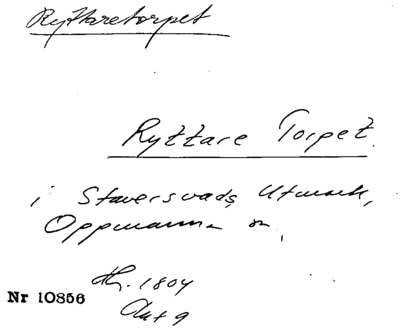 Ryttaretorpet
Ryttare Torpet.
i Staversvads Utmark,
Oppmanna sn,
Hg. 1804
Nr 10856
Akt 9